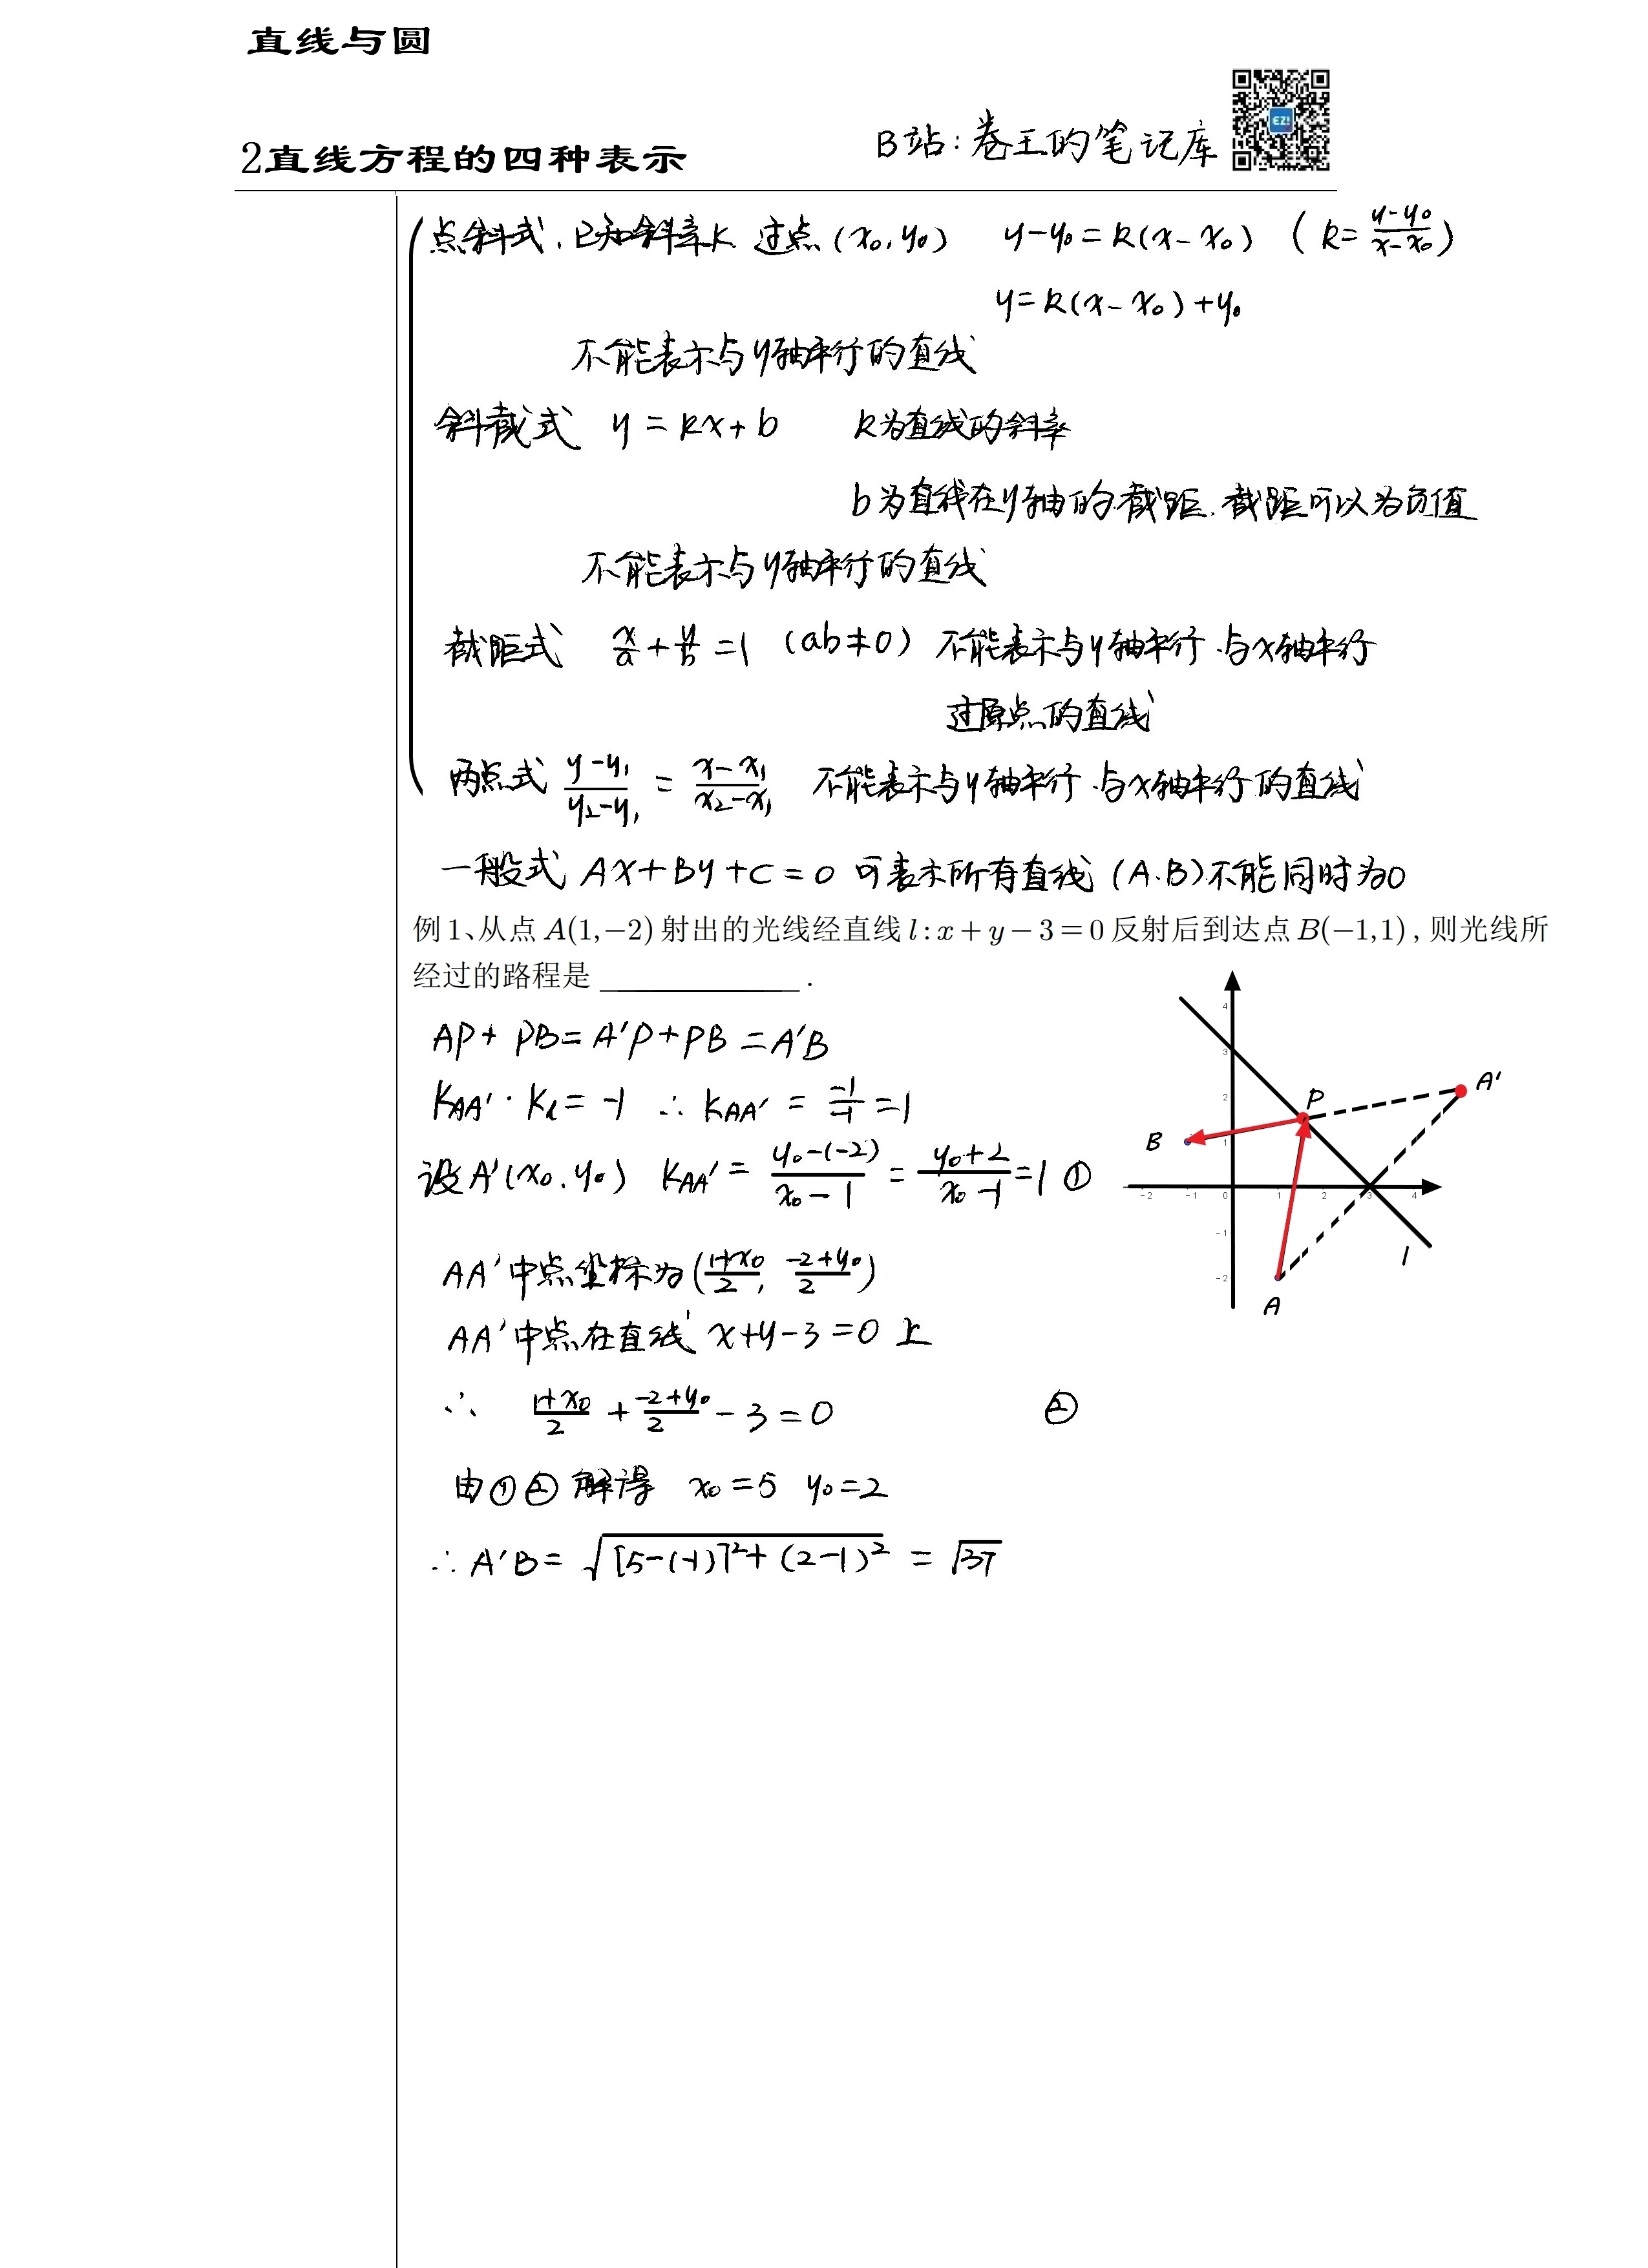 直线与圆
2直线方程的四种表示
B站:卷王的笔记库
点斜式.已知斜率k.过点(x₀,y₀) y-y₀=k(x-x₀) (k=\frac{y-y₀}{x-x₀})
y=k(x-x₀)+y₀
不能表示与y轴平行的直线
斜截式 y=kx+b k为直线的斜率
b为直线在y轴的截距.截距可以为负值
不能表示与y轴平行的直线
截距式 \frac{x}{a}+\frac{y}{b}=1 (ab≠0) 不能表示与y轴平行.与x轴平行
过原点的直线
两点式 \frac{y-y₁}{y₂-y₁}=\frac{x-x₁}{x₂-x₁} 不能表示与y轴平行.与x轴平行的直线
一般式 Ax+By+C=0 可表示所有直线(A.B)不能同时为0
例1、从点A(1,−2)射出的光线经直线l:x+y−3=0反射后到达点B(−1,1),则光线所
经过的路程是 ____________ .
AP+PB=A'P+PB=A'B
K_{AA'}·K_l=-1 ∴K_{AA'}=\frac{-1}{-1}=1
设A'(x₀.y₀) K_{AA'}=\frac{y₀-(-2)}{x₀-1}=\frac{y₀+2}{x₀-1}=1 ①
AA'中点坐标为(\frac{1+x₀}{2},\frac{-2+y₀}{2})
AA'中点在直线 x+y-3=0 上
∴ \frac{1+x₀}{2}+\frac{-2+y₀}{2}-3=0 ②
由①②解得 x₀=5 y₀=2
∴A'B=\sqrt{[5-(-1)]²+(2-1)²}=\sqrt{37}
4
3
2
1
-1
-2
-2 -1 0 1 2 3 4
A'
P
B
l
A
EZ!